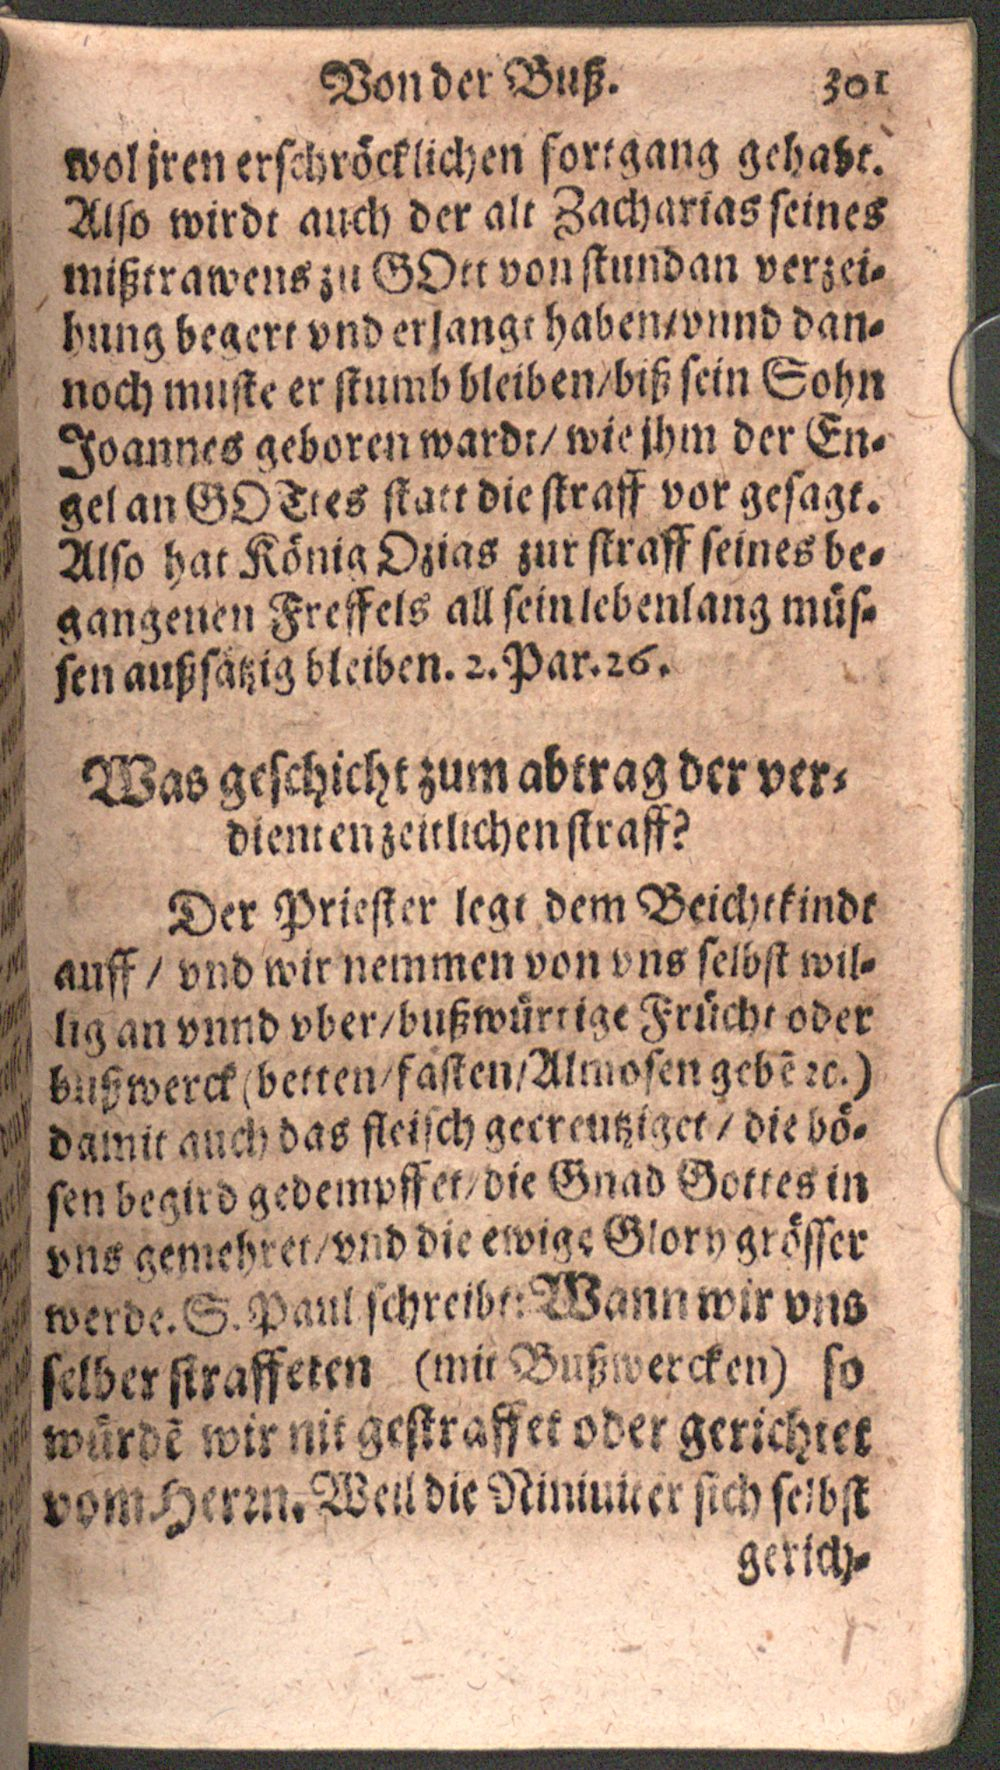 Von der Buß. 301
wol jren erschröcklichen fortgang gehabt.
Also wirdt auch der alt Zacharias seines
mißtrawens zu GOtt von stund an verzei-
hung begert vnd erlangt haben/vnnd dan-
noch muste er stumb bleiben/biß sein Sohn
Joannes geboren wardt/ wie jhm der En-
gel an GOTtes statt die straff vor gesagt.
Also hat König Ozias zur straff seines be-
gangenen Freffels all sein lebenlang müs-
sen außsätzig bleiben. 2. Par. 26.
Was geschicht zum abtrag der ver-
dienten zeitlichen straff?
Der Priester legt dem Beichtkindt
auff / vnd wir nemmen von vns selbst wil-
lig an vnnd vber/bußwürtige Frücht oder
bußwerck (betten/fasten/Almosen gebē ꝛc.)
damit auch das fleisch gecreutziget / die bö-
sen begird gedempffet/die Gnad Gottes in
vns gemehret/vnd die ewige Glory grösser
werde. S. Paul schreibt: Wann wir vns
selber straffeten (mit Bußwercken) so
würdē wir nit gestraffet oder gerichtet
vom Herrn. Weil die Niniuiter sich selbst
gerich-